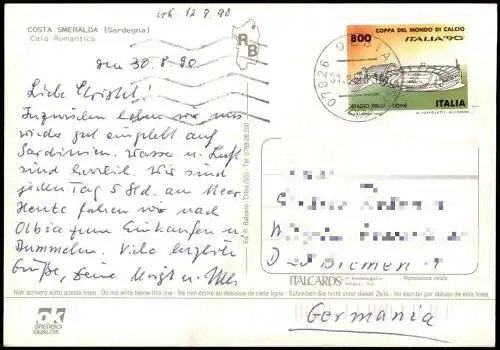 erh 12.9.90
COSTA SMERALDA (Sardegna)
Cala Romantica
RB
den 30.8.90
Liebe Christl!
Inzwischen haben wir uns
wieder gut eingelebt auf
Sardinien. Wasser u. Luft
sind herrlich. Wir sind
jeden Tag 5 Std. am Meer
Heute fahren wir nach
Olbia zum Einkaufen u.
Bummeln. Viele herzliche
Grüße, Deine u.
800
COPPA DEL MONDO DI CALCIO
ITALIA '90
STADIO FRIULI - UDINE
ITALIA
07026 OLBIA
Ed. R. Balzano - Olbia (SS) - Tel.
D BREMEN 1
ITALCARDS
Riproduzione vietata
Non scrivere sotto questa linea - Do not write below this line - Ne rien écrire au-dessous de cette ligne - Schreiben Sie nicht unter dieser Zeile - No escribir por debajo de esta línea
Germania
OK
SPEDISCI
QUALITÀ